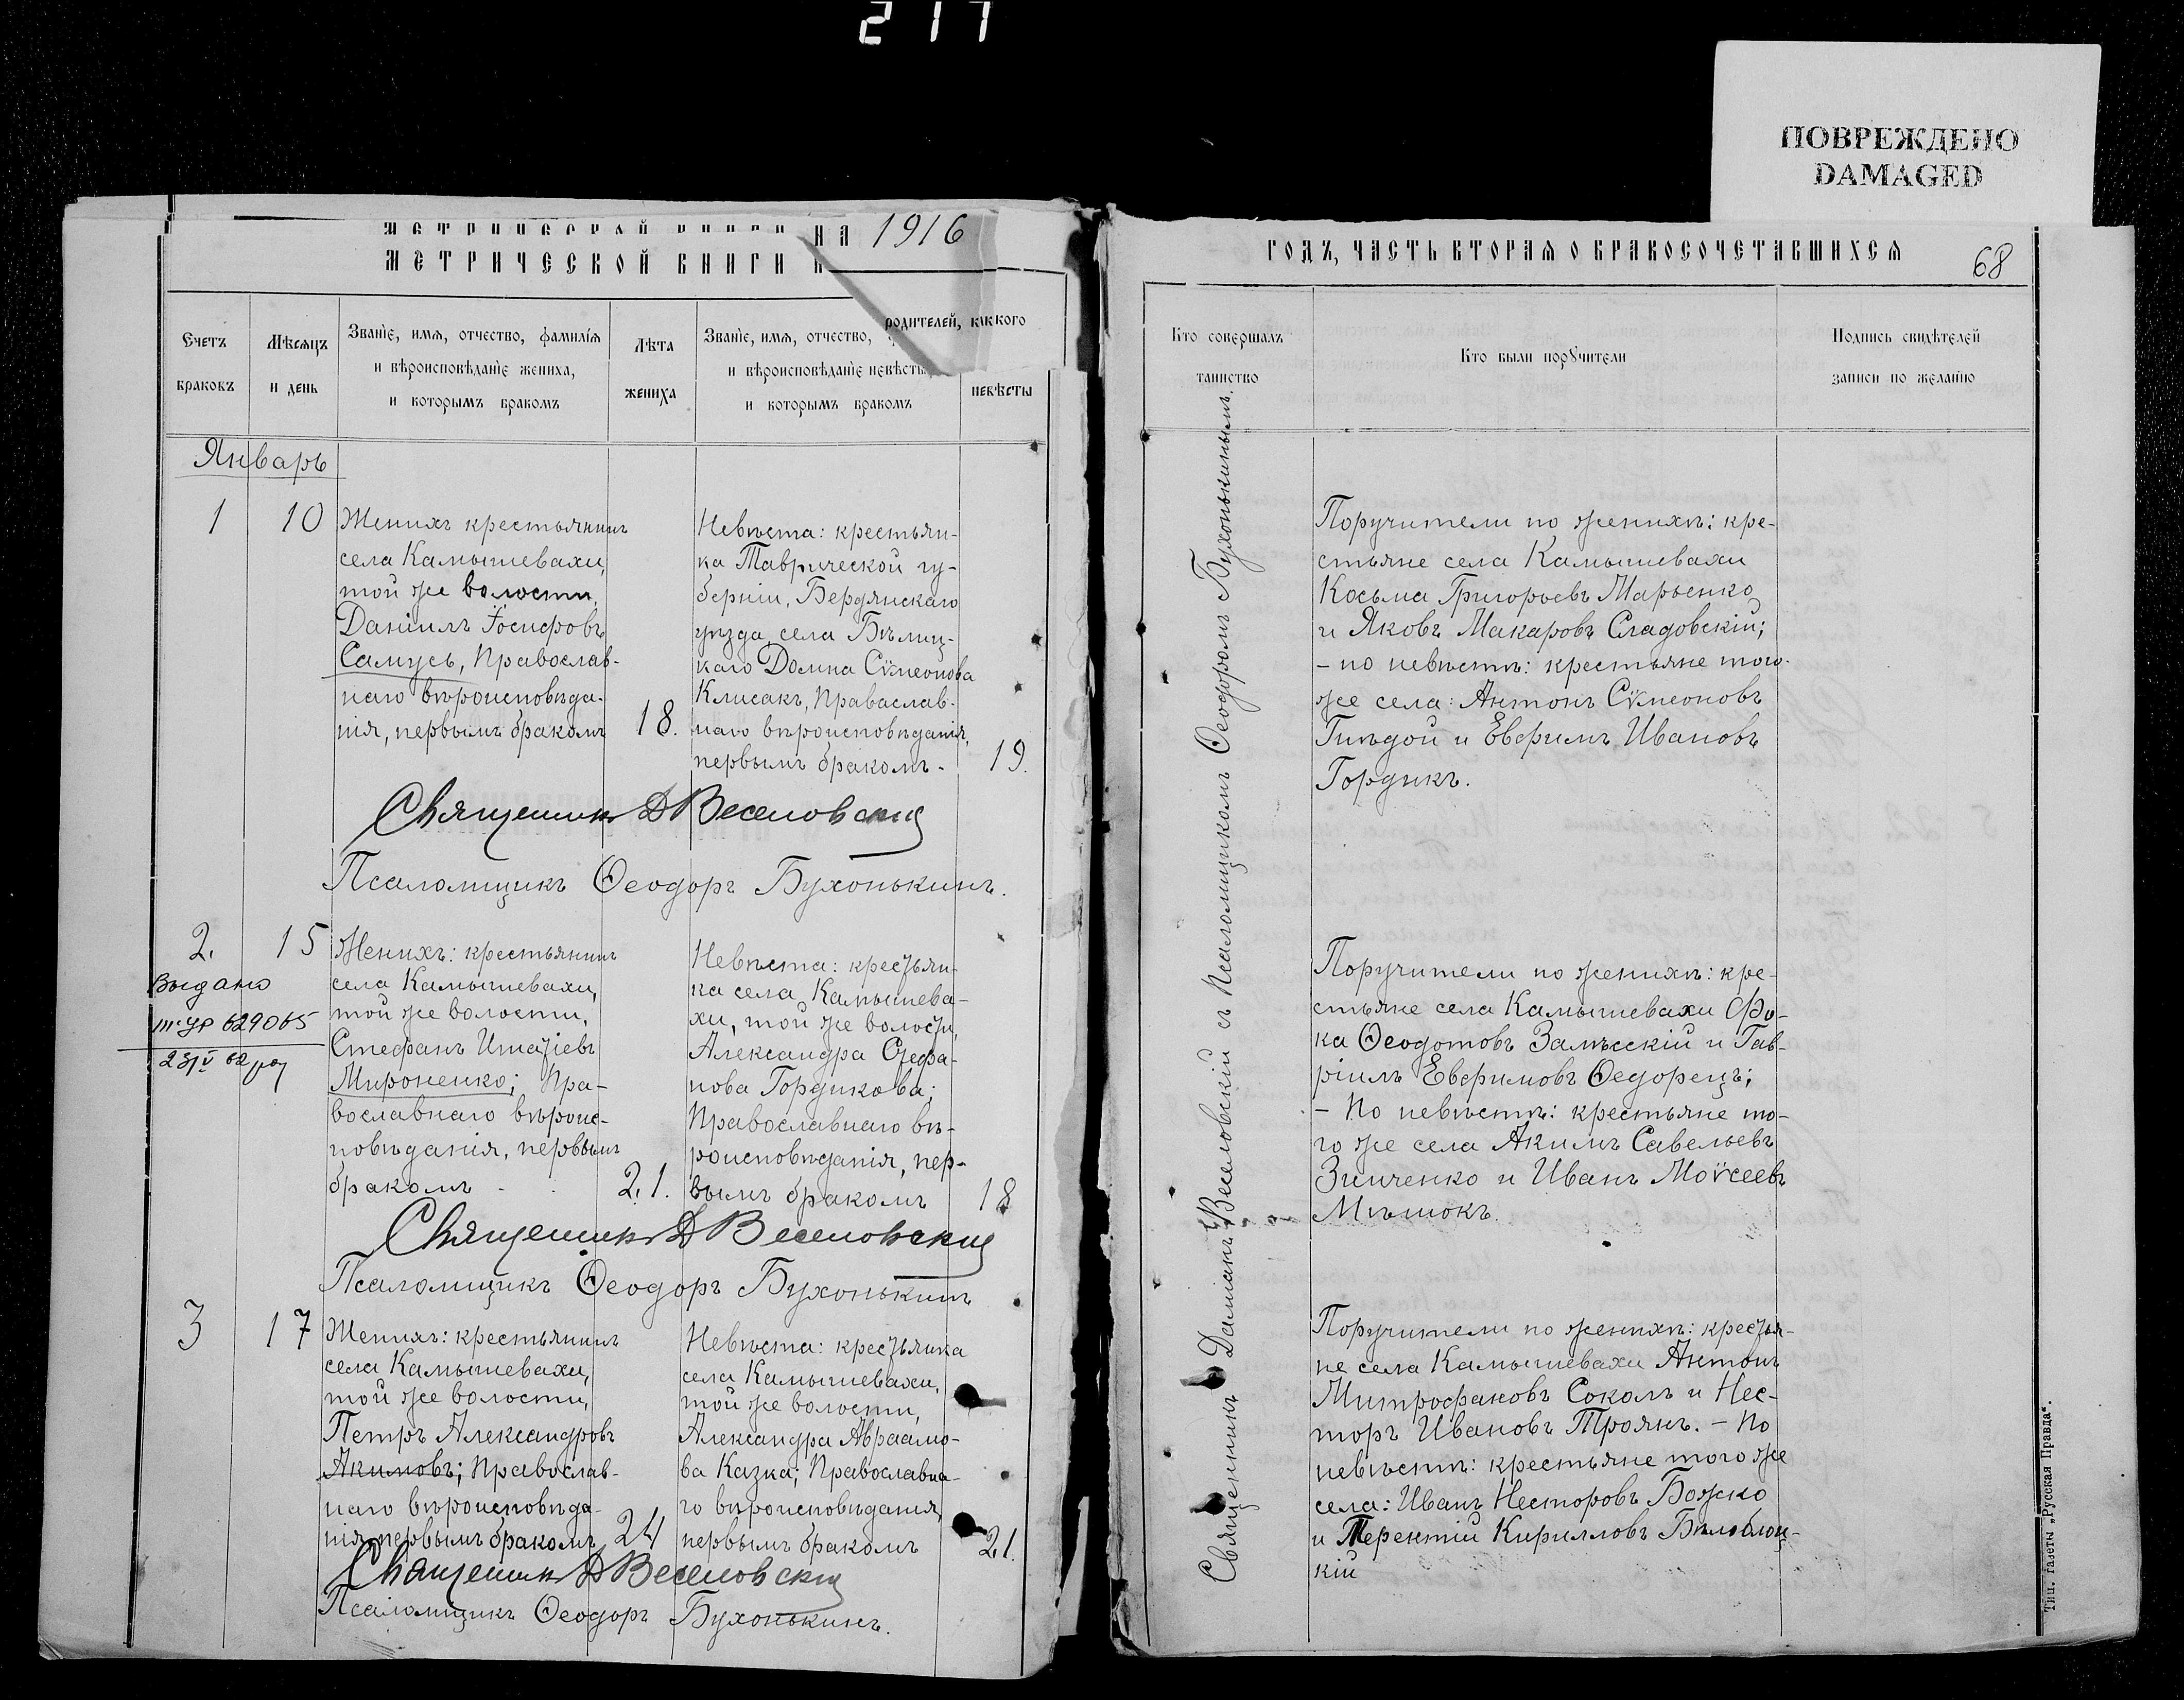 217
ПОВРЕЖДЕНО
DAMAGED
НА 1916
МЕТРИЧЕСКОЙ КНИГИ Н
Счетъ
браковъ
Мѣсяцъ
и день
Званіе, имя, отчество, фамилія
и вѣроисповѣданіе жениха,
и которымъ бракомъ
Лѣта
жениха
Званіе, имя, отчество,
и вѣроисповѣданіе невѣсты
и которымъ бракомъ
родителей,
кого
невѣсты
Январь
1
10
Женихъ крестьянинъ
села Камышевахи,
той же волости,
Даніилъ Іосифовъ
Самусь, Православ-
наго вѣроисповѣда-
нія, первымъ бракомъ
18.
Невѣста: крестьян-
ка Таврической гу-
берніи, Бердянскаго
уѣзда, села Бѣлиц-
каго Домна Сѵмеонова
Клисакъ, Праваслав-
наго вѣроисповѣданія,
первымъ бракомъ-
19.
Священникъ Д Веселовскій
Псаломщикъ Ѳеодоръ Бухонькинъ.
2.
15
Выдано
629065
Женихъ: крестьянинъ
села Камышевахи,
той же волости,
Стефанъ Игнатіевъ
Мироненко; Пра-
вославнаго вѣроис-
повѣданія, первымъ
бракомъ - .
21.
Невѣста: крестьян-
ка села Камышева-
хи, той же волости,
Александра Стефа-
нова Гордикова;
Православнаго вѣ-
роисповѣданія, пер-
вымъ бракомъ
18
Священникъ Д Веселовскій
Псаломщикъ Ѳеодоръ Бухонькинъ
3
17
Женихъ: крестьянинъ
села Камышевахи,
той же волости,
Петръ Александровъ
Акимовъ; Православ-
наго вѣроисповѣда-
нія первымъ бракомъ
24
Невѣста: крестьянка
села Камышевахи,
той же волости,
Александра Авраамо-
ва Казка; Православна-
го вѣроисповѣданія,
первымъ бракомъ
21.
Священникъ Д Веселовскій
Псаломщикъ Ѳеодоръ Бухонькинъ.
ГОДЪ, ЧАСТЬ ВТОРАЯ О БРАКОСОЧЕТАВШИХСЯ
68
Кто совершалъ
таинство
Кто были поручители
Подпись свидѣтелей
записи по желанію
Священникъ Даміанъ Веселовскій съ Псаломщикомъ Ѳеодоромъ Бухонькинымъ.
Поручители по женихѣ: кре-
стьяне села Камышевахи
Косьма Григорьевъ Марьенко
и Яковъ Макаровъ Сладовскій;
- по невѣстѣ: крестьяне того-
же села: Антонъ Сѵмеоновъ
Гнѣдой и Евфимъ Ивановъ
Гордикъ.
Поручители по женихѣ: кре-
стьяне села Камышевахи Фо-
ка Ѳеодотовъ Залѣсскій и Гав-
ріилъ Евфимовъ Ѳедорецъ;
- По невѣстѣ: крестьяне то-
го же села Акимъ Савельевъ
Зинченко и Иванъ Моѵсеевъ
Мѣшокъ.
Поручители по женихѣ: крестья-
не села Камышевахи Антонъ
Митрофановъ Соколъ и Нес-
торъ Ивановъ Троянъ. - По
невѣстѣ: крестьяне того же
села: Иванъ Несторовъ Божко
и Терентій Кирилловъ Бѣлоблоц-
кій
Тип. газеты „Русская Правда“.